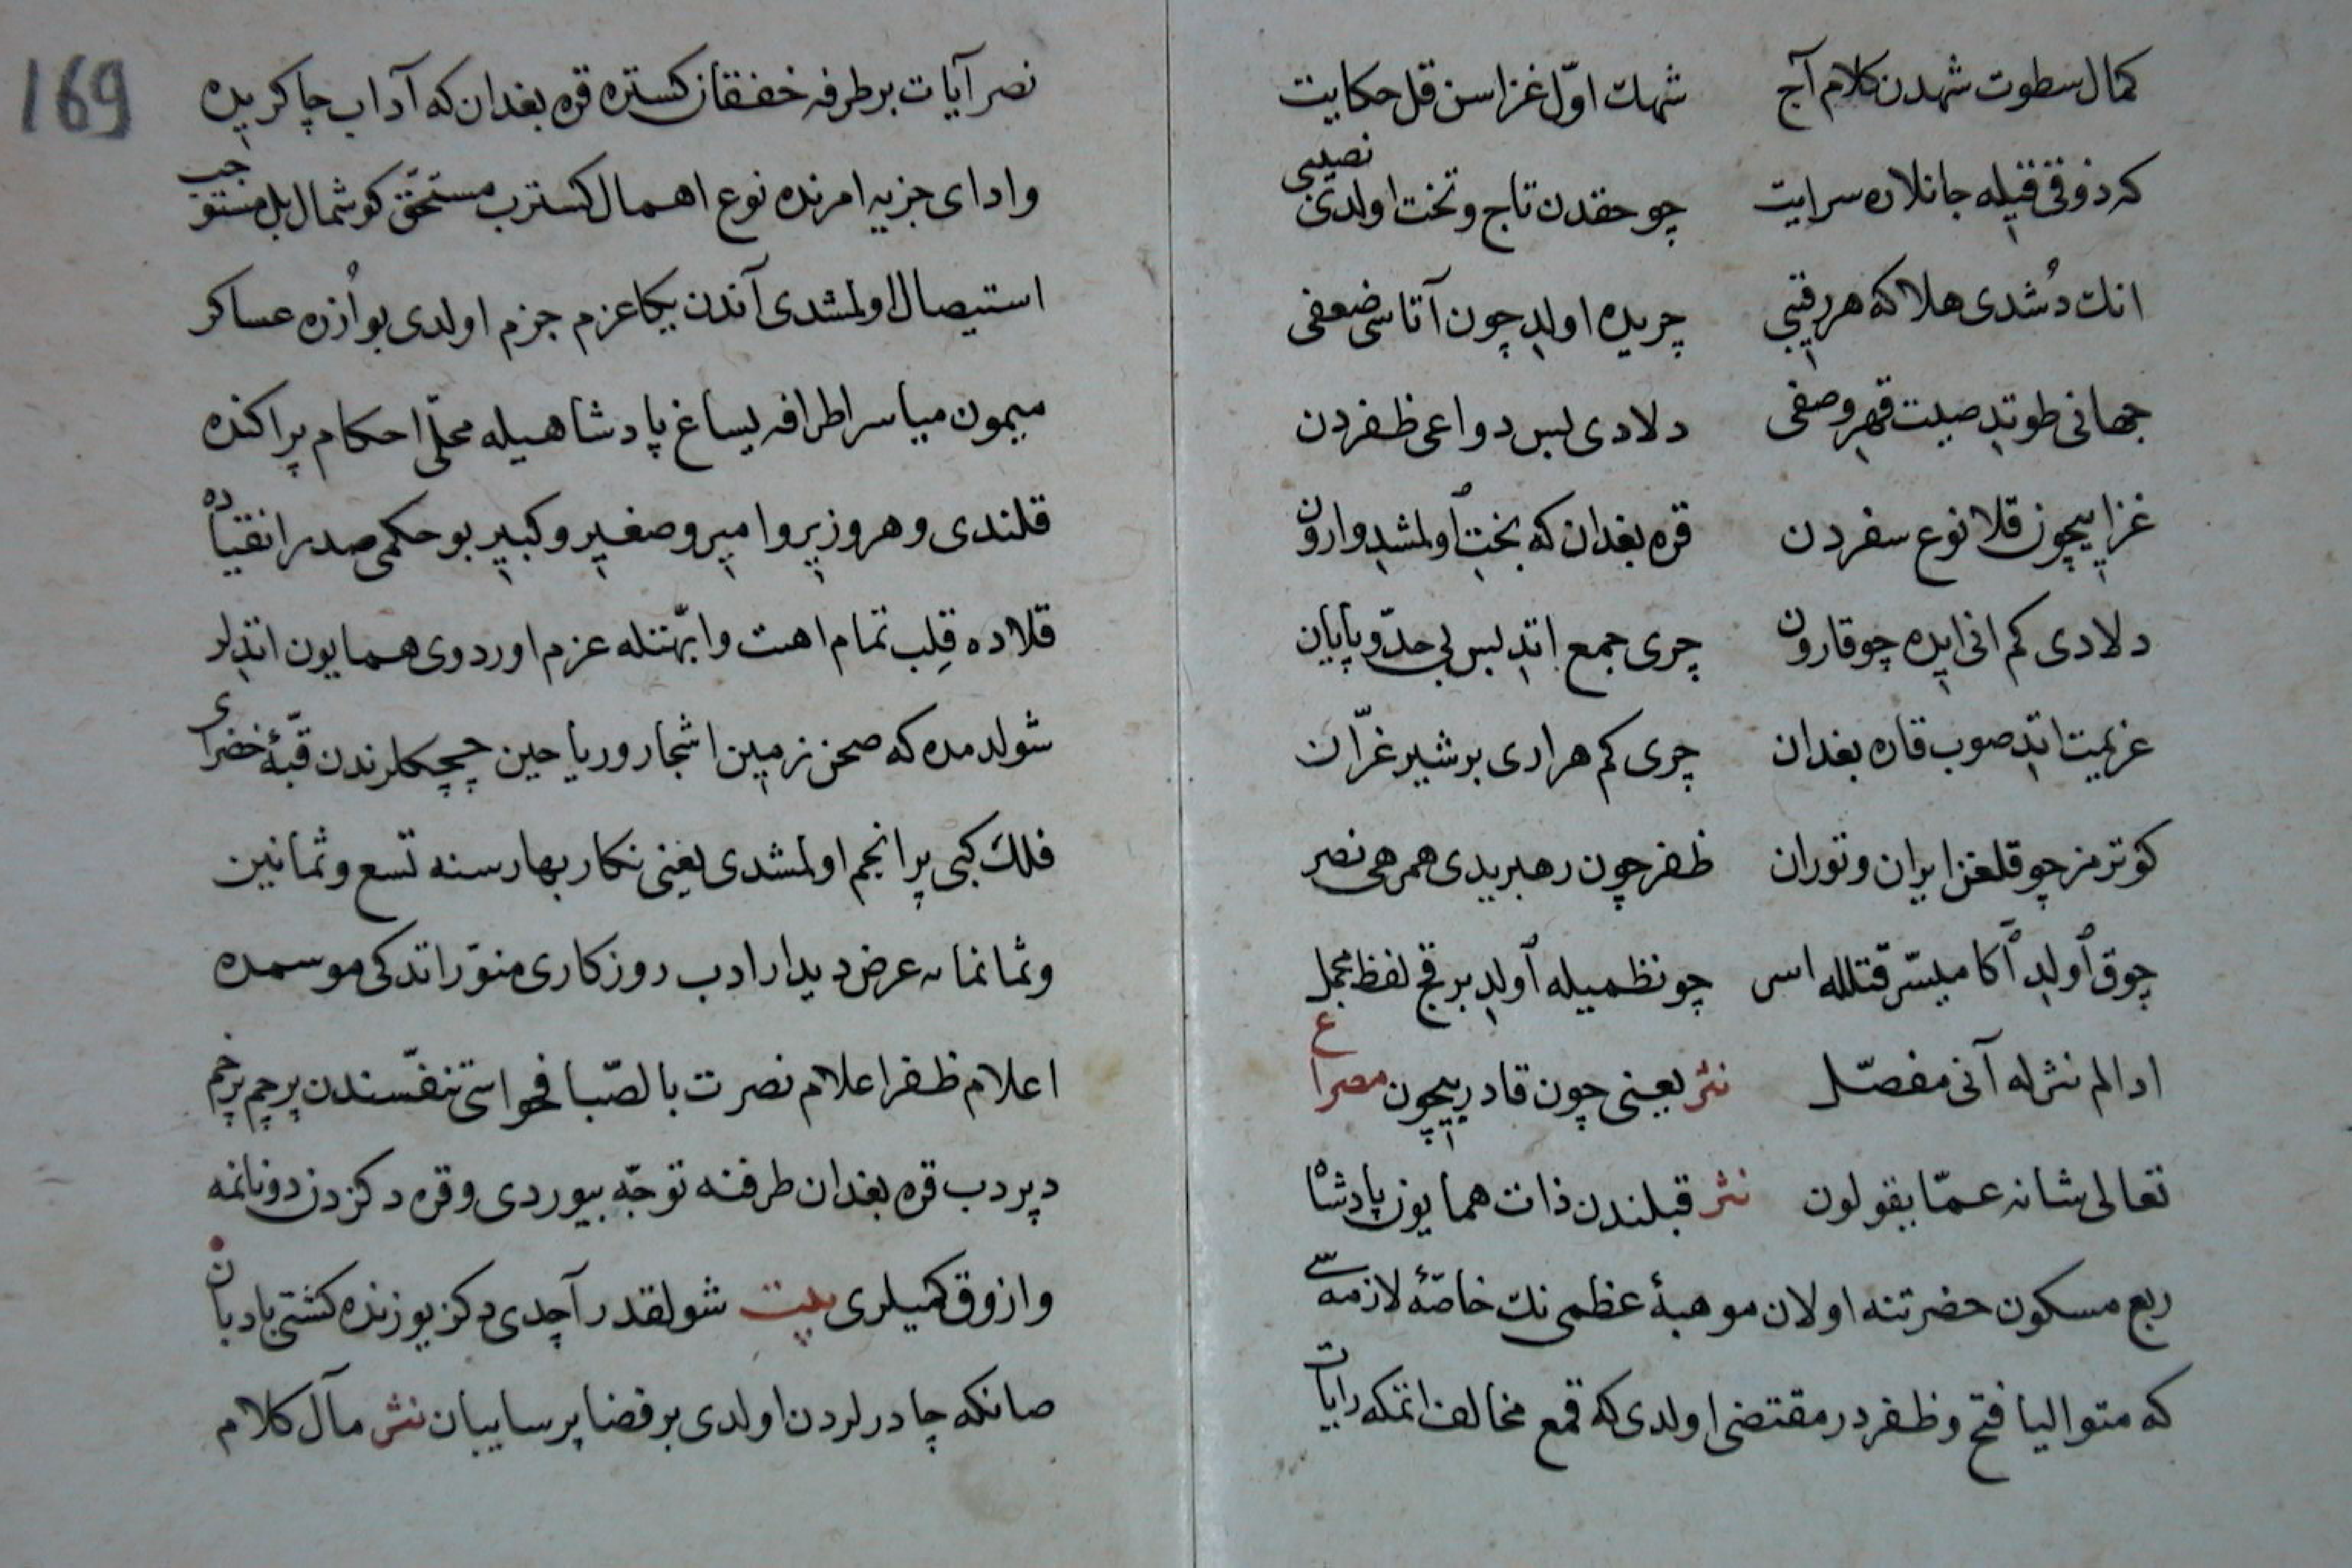 كمال سطوت شهدن كلام آج شهك اوّل غزاسن قل حكايت
كه ذوقی قيله جانلاره سرايت چو حقدن تاج و تخت اولدی نصيبی
انك دُشدی هلاكه هر رقيبی چريده اولدِ چون آتاسی ضعفی
جهانی طوتدِ صيت قهر وصفی دلادی بس دواعی ظفردن
غزا ايچون قلا نوع سفردن قره بغدان كه بخت اولمشدِ وارون
دلادی كم انی ايده چو قارون چری جمع اتدِ بس بی حدّ و پايان
عزيمت اتدِ صوب قاره بغدان چری كم هر اری بر شير غرّان
كوترمز چو قلغن ايران و توران ظفر چون رهبريدی همرهی نصر
چوق اولدِ آكا ميسّر قتلله اسر چو نظميله اولدِ بر قچ لفظ مجمل
ادالم نثرله آنی مفصّل نثر يعنی چون قادر بيچون مصراع
تعالی شانه عمّا يقولون نثر قبلندن ذات همايون پادشاه
ربع مسكون حضرتنه اولان موهبۀ عظمی نك خاصّۀ لازمه سی
كه متواليا فتح و ظفردر مقتضی اولدی كه قمع مخالف اتمكه رايات
169
نصر آيات بر طرفه خفقان كستره قره بغدان كه آداب چاكريده
و ادای جزيه امرنده نوع اهمال كسترب مستحقّ كوشمال بل مستوجب
استيصال اولمشدی آندن يكا عزم جزم اولدی بو اُزره عساكر
ميمون مياسر اطرافه يساغ پادشاهيله محلّی احكام پراكنده
قلندی و هر وزير و امير و صغير و كبير بو حكمی صدر انقياده
قلاده قِلب تمام اهبت و ابّهتله عزم اوردوی همايون اتدِلر
شول دمده كه صحن زمين اشجار و رياحين چيچكلرندن قبّۀ خضرای
فلك كبی پر انجم اولمشدی يعنی نكار بهار سنه تسع و ثمانين
و ثمانمايه عرض ديدار ادب روزكاری منوّر اتدكی موسمده
اعلام ظفر اعلام نصرت بالصّبا فحواسی تنفّسندن پرچم پرخم
دپردب قره بغدان طرفنه توجّه بيوردی و قره دكزدن دونانمه
و ازوق كميلری بيت شولقدر آچدی دكز يوزنده كشتی بادبان
صانكه چادرلردن اولدی بر فضا پر سايبان نثر مآل كلام